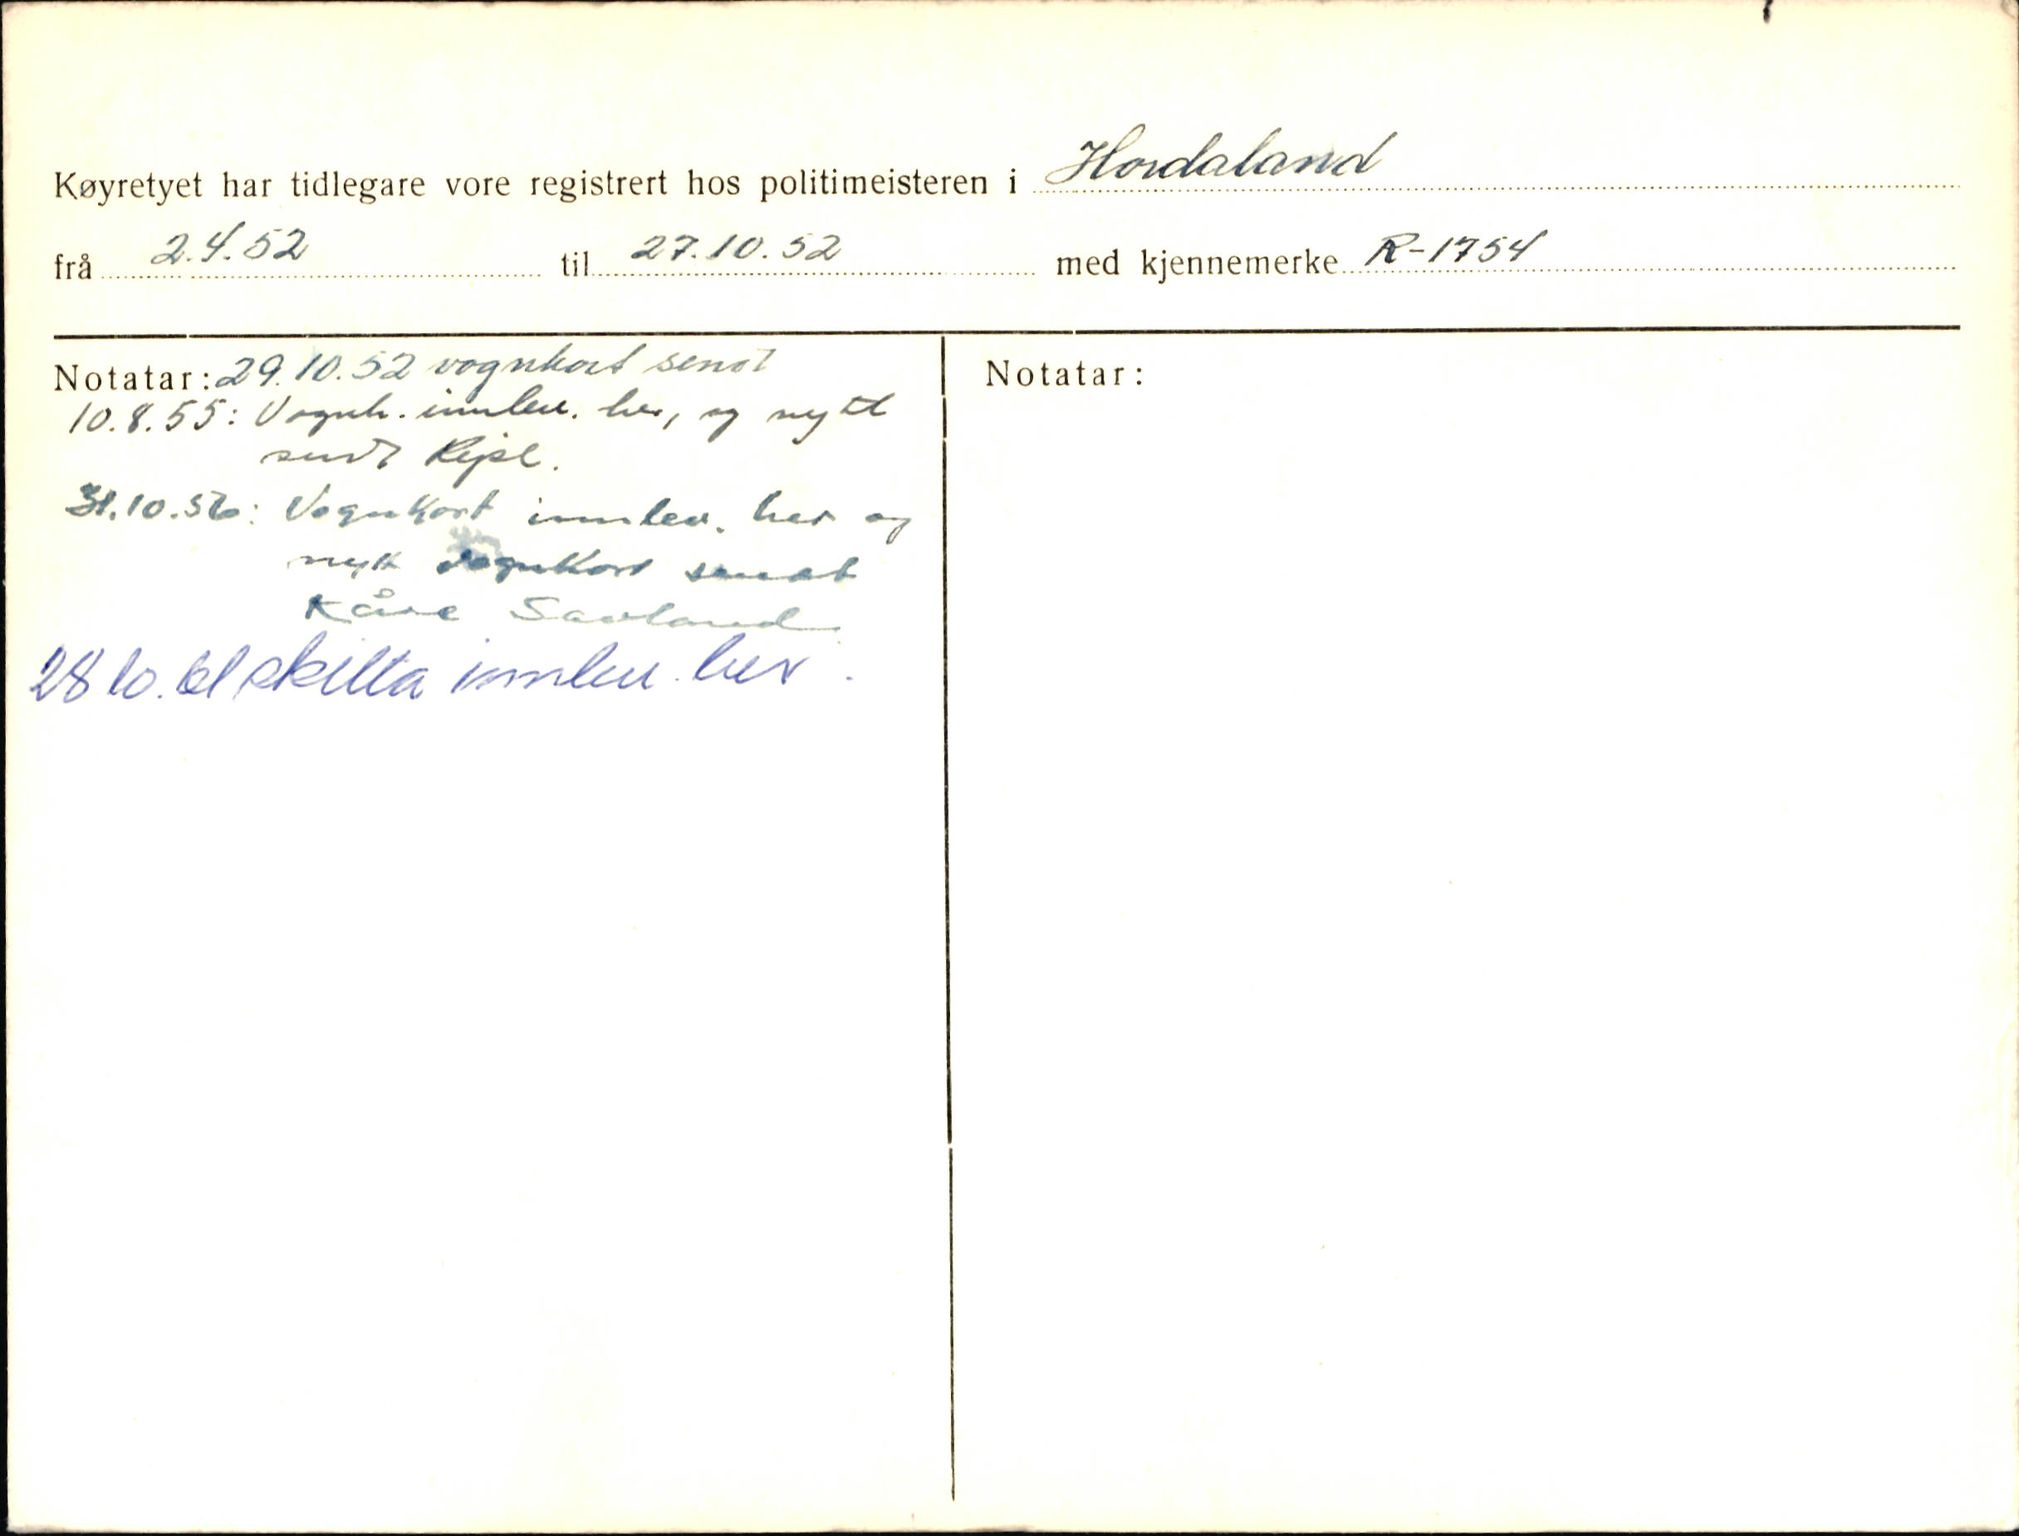 Køyretyet har tidlegare vore registrert hos politimeisteren i Hordaland
frå 2.4.52 til 27.10.52 med kjennemerke R-1754
Notatar: 29.10.52 vognkort sendt
10.8.55: Vognk. innlev. her, og nytt
sendt
31.10.56: Vognkort innlev. her og
nytt vognkort sendt
Kåre
28 10. 61 skilta innlev. her.
Notatar: